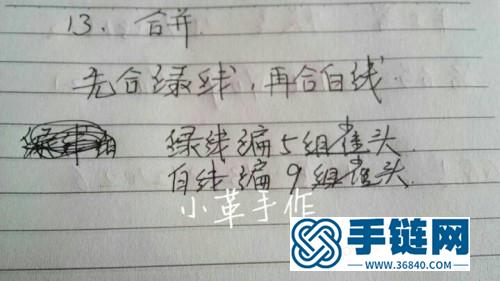 13. 合并
先合绿线,再合白线.
绿线编5组雀头
白线编9组雀头.
小革手作
手链网
WWW.36840.COM